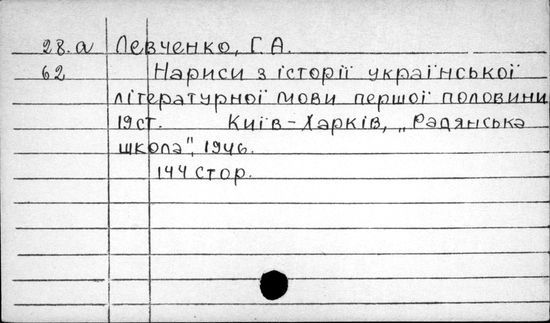 28.а Левченко, Г. А.
62 Нариси з історії української
літературної мови першої половини
19 ст. Київ - Харків, „Радянська
школа", 1946.
144 стор.